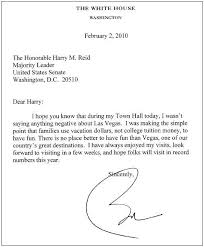 THE WHITE HOUSE
WASHINGTON
February 2, 2010
The Honorable Harry M. Reid
Majority Leader
United States Senate
Washington, D.C. 20510
Dear Harry:
I hope you know that during my Town Hall today, I wasn't
saying anything negative about Las Vegas. I was making the simple
point that families use vacation dollars, not college tuition money, to
have fun. There is no place better to have fun than Vegas, one of our
country's great destinations. I have always enjoyed my visits, look
forward to visiting in a few weeks, and hope folks will visit in record
numbers this year.
Sincerely,